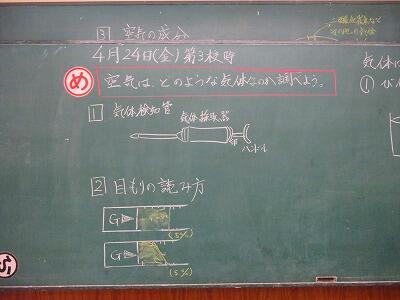 3 空気の成分
4月24日(金)第3校時
め 空気は、どのような気体なのか調べよう。
1 気体検知管
気体採取器
印
ハンドル
2 目もりの読み方
G
(5%)
G
(5%)
気体に
① びん